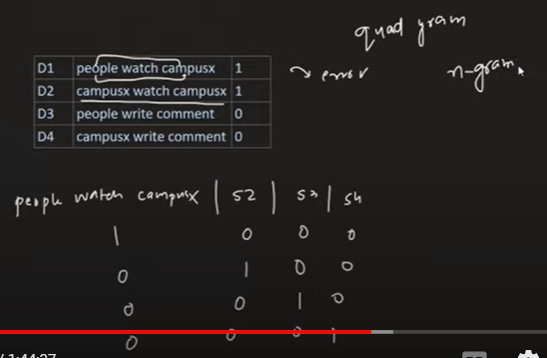 quad gram
D1 people watch campusx 1
error
n-gram
D2 campusx watch campusx 1
D3 people write comment 0
D4 campusx write comment 0
people watch campusx | S2 | S3 | S4
1 0 0 0
0 1 0 0
0 0 1 0
0 0 0 1